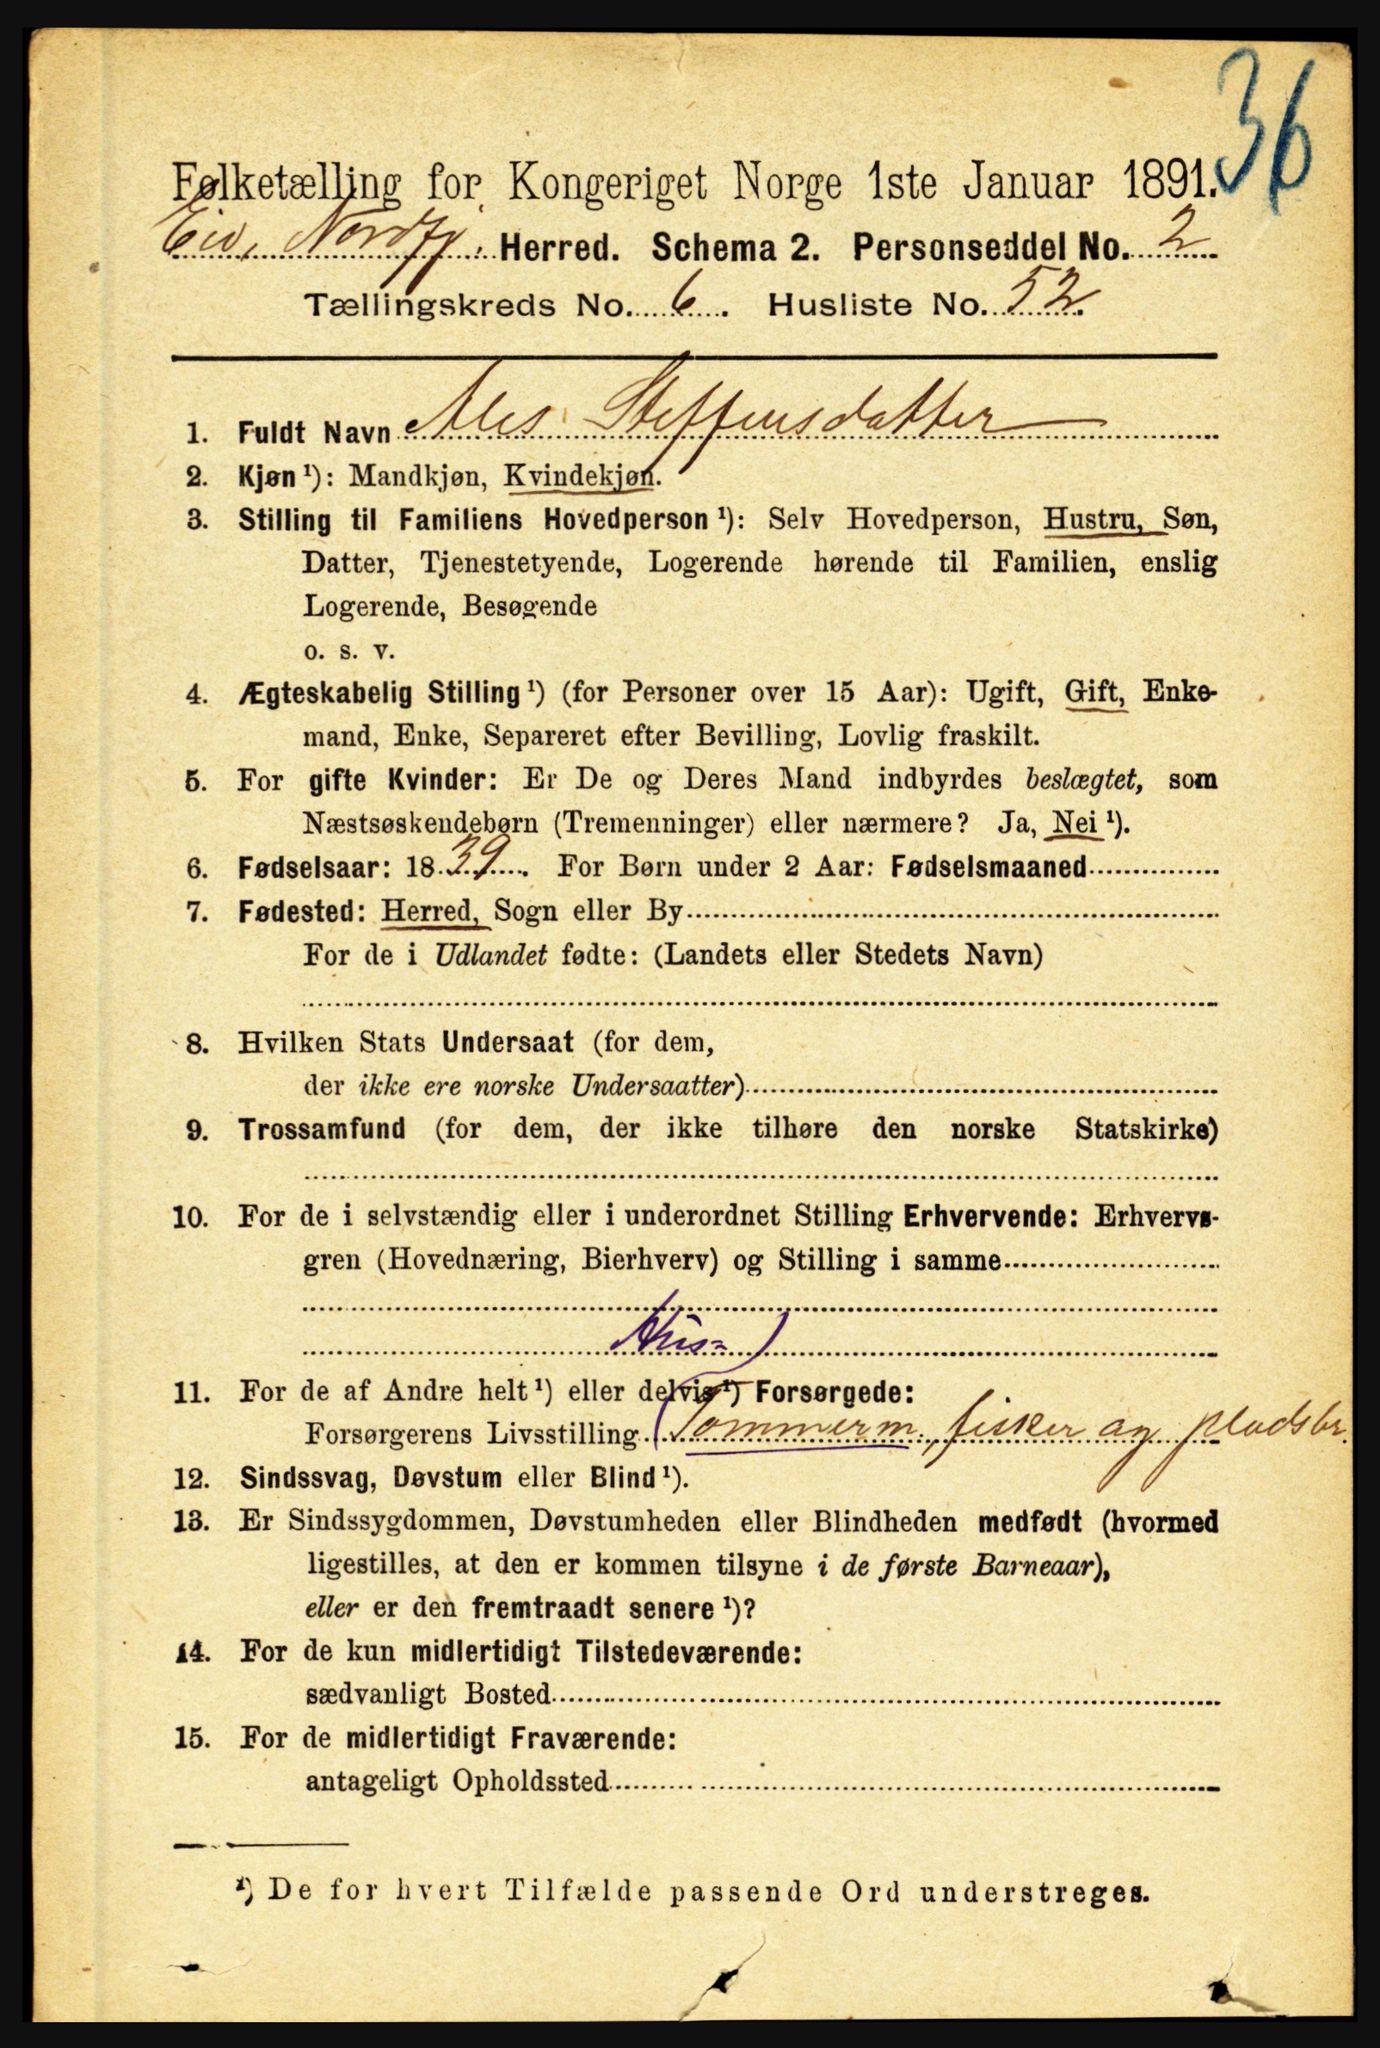 36
Folketælling for Kongeriget Norge 1ste Januar 1891.
Eid, Nordfj. Herred. Schema 2. Personseddel No. 2
Tællingskreds No. 6. Husliste No. 52.
1. Fuldt Navn Ales Steffensdatter
2. Kjøn ¹): Mandkjøn, Kvindekjøn.
3. Stilling til Familiens Hovedperson ¹): Selv Hovedperson, Hustru, Søn,
Datter, Tjenestetyende, Logerende hørende til Familien, enslig
Logerende, Besøgende
o. s. v.
4. Ægteskabelig Stilling ¹) (for Personer over 15 Aar): Ugift, Gift, Enke-
mand, Enke, Separeret efter Bevilling, Lovlig fraskilt.
5. For gifte Kvinder: Er De og Deres Mand indbyrdes beslægtet, som
Næstsøskendebørn (Tremenninger) eller nærmere? Ja, Nei ¹).
6. Fødselsaar: 1839. For Børn under 2 Aar: Fødselsmaaned
7. Fødested: Herred, Sogn eller By
For de i Udlandet fødte: (Landets eller Stedets Navn)
8. Hvilken Stats Undersaat (for dem,
der ikke ere norske Undersaatter)
9. Trossamfund (for dem, der ikke tilhøre den norske Statskirke)
10. For de i selvstændig eller i underordnet Stilling Erhvervende: Erhvervs-
gren (Hovednæring, Bierhverv) og Stilling i samme
Hus=)
11. For de af Andre helt ¹) eller delvis ¹) Forsørgede:
Forsørgerens Livsstilling (Tømmerm., fisker og pladsbr.
12. Sindssvag, Døvstum eller Blind ¹).
13. Er Sindssygdommen, Døvstumheden eller Blindheden medfødt (hvormed
ligestilles, at den er kommen tilsyne i de første Barneaar),
eller er den fremtraadt senere ¹)?
14. For de kun midlertidigt Tilstedeværende:
sædvanligt Bosted
15. For de midlertidigt Fraværende:
antageligt Opholdssted
¹) De for hvert Tilfælde passende Ord understreges.